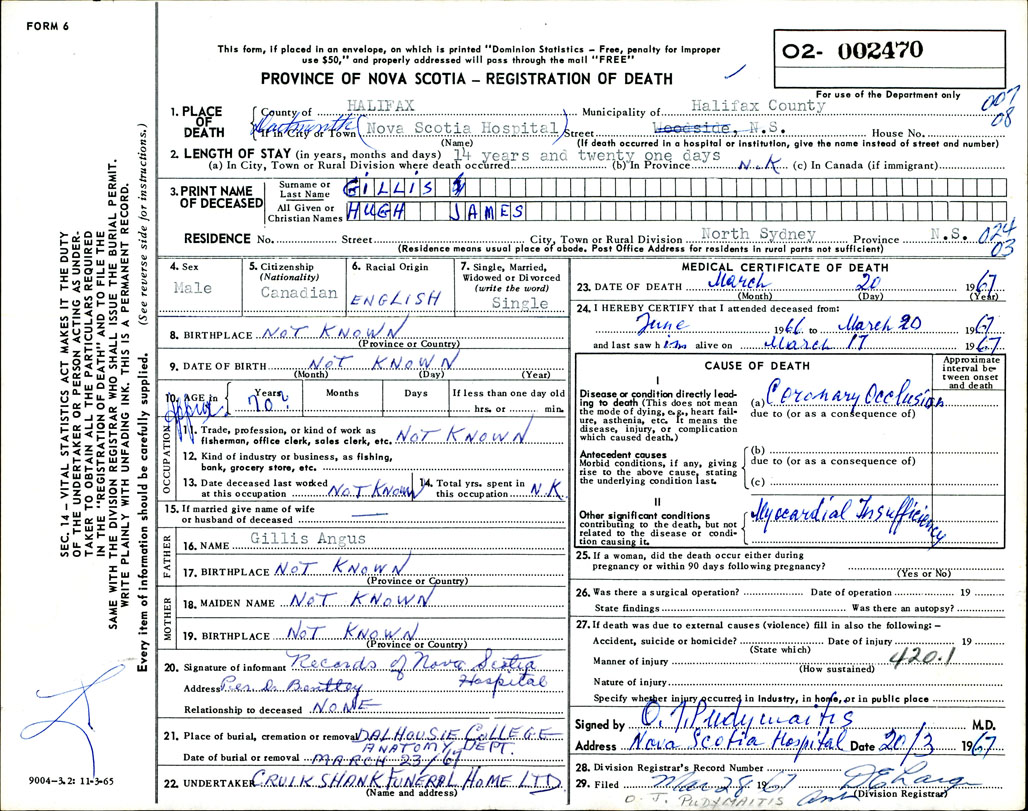 FORM 6
This form, if placed in an envelope, on which is printed "Dominion Statistics – Free, penalty for improper
use $50," and properly addressed will pass through the mail "FREE"
PROVINCE OF NOVA SCOTIA – REGISTRATION OF DEATH
O2- 002470
For use of the Department only
007
08
1. PLACE OF DEATH
County of HALIFAX Municipality of Halifax County
Dartmouth
If in City or Town (Nova Scotia Hospital) Street Woodside, N.S. House No.
(Name) (If death occurred in a hospital or institution, give the name instead of street and number)
2. LENGTH OF STAY (in years, months and days) 14 years and twenty one days
(a) In City, Town or Rural Division where death occurred (b) In Province N.K (c) In Canada (if immigrant)
3. PRINT NAME OF DECEASED
Surname or Last Name GILLIS
All Given or Christian Names HUGH JAMES
RESIDENCE No. Street City, Town or Rural Division North Sydney Province N.S.
024
03
(Residence means usual place of abode. Post Office Address for residents in rural parts not sufficient)
4. Sex
Male
5. Citizenship
(Nationality)
Canadian
6. Racial Origin
ENGLISH
7. Single, Married,
Widowed or Divorced
(write the word)
Single
8. BIRTHPLACE NOT KNOWN
(Province or Country)
9. DATE OF BIRTH NOT KNOWN
(Month) (Day) (Year)
10. AGE in Years Months Days If less than one day old
Approx. 70? hrs. or min.
OCCUPATION
11. Trade, profession, or kind of work as
fisherman, office clerk, sales clerk, etc. NOT KNOWN
12. Kind of industry or business, as fishing,
bank, grocery store, etc.
13. Date deceased last worked
at this occupation NOT KNOWN
14. Total yrs. spent in
this occupation N.K.
15. If married give name of wife
or husband of deceased —
FATHER
16. NAME Gillis Angus
17. BIRTHPLACE NOT KNOWN
(Province or Country)
MOTHER
18. MAIDEN NAME NOT KNOWN
19. BIRTHPLACE NOT KNOWN
(Province or Country)
20. Signature of informant Records of Nova Scotia
Hospital
Address Per D. Bentley
Relationship to deceased NONE
21. Place of burial, cremation or removal DALHOUSIE COLLEGE
ANATOMY DEPT.
Date of burial or removal MARCH 23/67
22. UNDERTAKER CRUIKSHANK FUNERAL HOME LTD
(Name and address)
MEDICAL CERTIFICATE OF DEATH
23. DATE OF DEATH March 20 1967
(Month) (Day) (Year)
24. I HEREBY CERTIFY that I attended deceased from:
June 1966 to March 20 1967
and last saw him alive on March 17 1967
CAUSE OF DEATH
Approximate interval between onset and death
I
Disease or condition directly leading to death (This does not mean the mode of dying, e.g., heart failure, asthenia, etc. It means the disease, injury, or complication which caused death.)
(a) Coronary Occlusion
due to (or as a consequence of)
Antecedent causes
Morbid conditions, if any, giving rise to the above cause, stating the underlying condition last.
(b)
due to (or as a consequence of)
(c)
II
Other significant conditions
contributing to the death, but not related to the disease or condition causing it.
Myocardial Insufficiency
25. If a woman, did the death occur either during
pregnancy or within 90 days following pregnancy?
(Yes or No)
26. Was there a surgical operation? Date of operation 19
State findings Was there an autopsy?
27. If death was due to external causes (violence) fill in also the following: –
Accident, suicide or homicide? Date of injury 19
(State which)
420.1
Manner of injury
(How sustained)
Nature of injury
Specify whether injury occurred in Industry, in home, or in public place
Signed by O. J. Pudymaitis M.D.
Address Nova Scotia Hospital Date 20/3 1967
28. Division Registrar's Record Number
29. Filed Mar 28 1967
(Division Registrar)
O. J. PUDYMAITIS
SEC. 14 – VITAL STATISTICS ACT MAKES IT THE DUTY
OF THE UNDERTAKER OR PERSON ACTING AS UNDER-
TAKER TO OBTAIN ALL THE PARTICULARS REQUIRED
IN THE "REGISTRATION OF DEATH" AND TO FILE THE
SAME WITH THE DIVISION REGISTRAR WHO SHALL ISSUE THE BURIAL PERMIT.
WRITE PLAINLY WITH UNFADING INK. THIS IS A PERMANENT RECORD.
Every item of information should be carefully supplied. (See reverse side for instructions.)
9004-3.2: 11-3-65